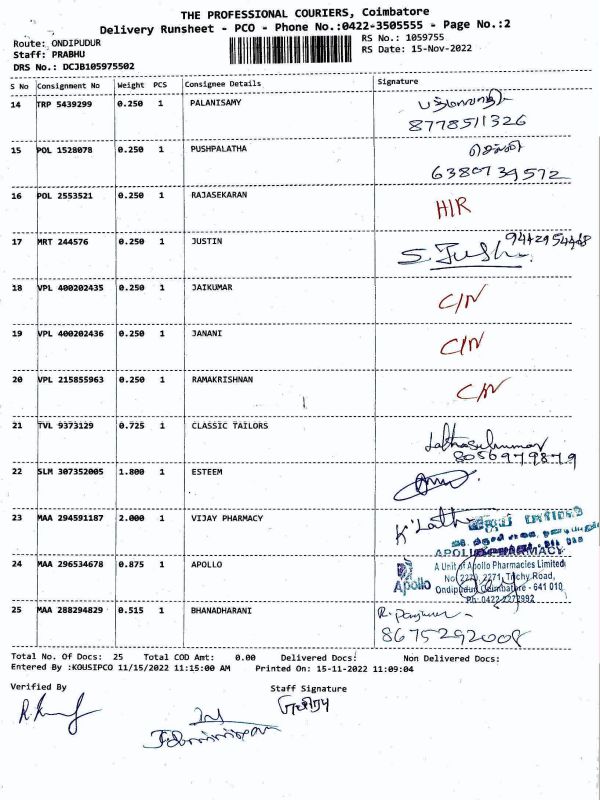 THE PROFESSIONAL COURIERS, Coimbatore
Delivery Runsheet - PCO - Phone No.:0422-3505555 - Page No.:2
Route: ONDIPUDUR
RS No.: 1059755
Staff: PRABHU
RS Date: 15-Nov-2022
DRS No.: DCJB105975502
S No Consignment No Weight PCS Consignee Details Signature
14 TRP 5439299 0.250 1 PALANISAMY
8778511326
15 POL 1528078 0.250 1 PUSHPALATHA
6380734572
16 POL 2553521 0.250 1 RAJASEKARAN
H/R
17 MRT 244576 0.250 1 JUSTIN
9442954468
18 VPL 400202435 0.250 1 JAIKUMAR
C/N
19 VPL 400202436 0.250 1 JANANI
C/N
20 VPL 215855963 0.250 1 RAMAKRISHNAN
C/N
21 TVL 9373129 0.725 1 CLASSIC TAILORS
8056979879
22 SLM 307352005 1.800 1 ESTEEM
23 MAA 294591187 2.000 1 VIJAY PHARMACY
K. Latha
APOLLO PHARMACY
24 MAA 296534678 0.875 1 APOLLO
A Unit of Apollo Pharmacies Limited
Apollo
No 2270, 2271, Trichy Road,
Ondipudur, Coimbatore - 641 010
Ph: 0422-2272992
25 MAA 288294829 0.515 1 BHANADHARANI
8675292008
Total No. Of Docs: 25 Total COD Amt: 0.00 Delivered Docs: Non Delivered Docs:
Entered By :KOUSIPCO 11/15/2022 11:15:00 AM Printed On: 15-11-2022 11:09:04
Verified By
Staff Signature